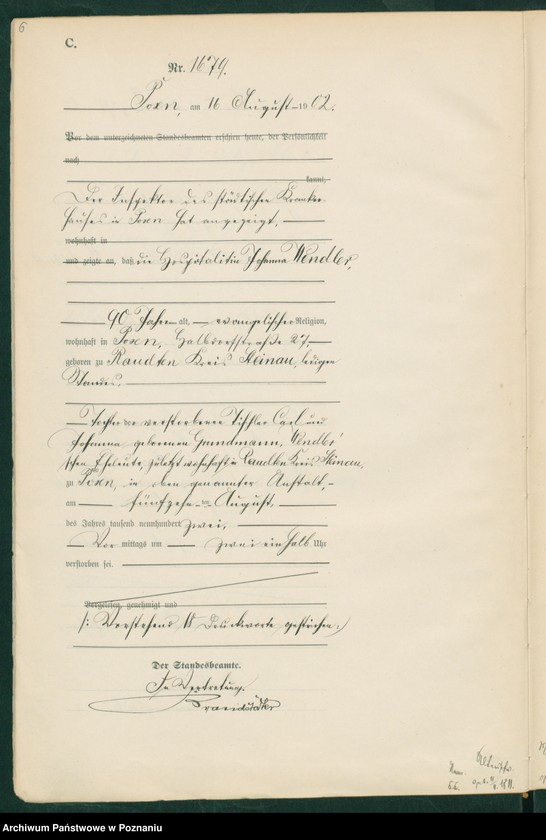 6
C.
Nr. 1679.
Posen, am 16 August 1902.
Vor dem unterzeichneten Standesbeamten erschien heute, der Persönlichkeit
nach
kannt,
Der Inspektor des städtischen Kranken-
hauses in Posen hat angezeigt,
wohnhaft in
und zeigte an, daß die Hospitalitin Johanna Wendler,
90 Jahre alt, evangelischer Religion,
wohnhaft in Posen, Halbdorfstraße 27,
geboren zu Raudten Kreis Steinau, ledigen
Standes,
Tochter der verstorbenen Tischler Carl und
Johanna geborenen Gundmann, Wendler'
schen Eheleute, zuletzt wohnhaft in Raudten Kreis Steinau,
zu Posen, in oben genannter Anstalt,
am fünfzehn ten August,
des Jahres tausend neunhundert zwei,
Vor mittags um zwei ein halb Uhr
verstorben sei.
Vorgelesen, genehmigt und
/: Vorstehend 18 Druckworte gestrichen :/
Der Standesbeamte.
In Vertretung.
Brandstädter
Archiwum Państwowe w Poznaniu